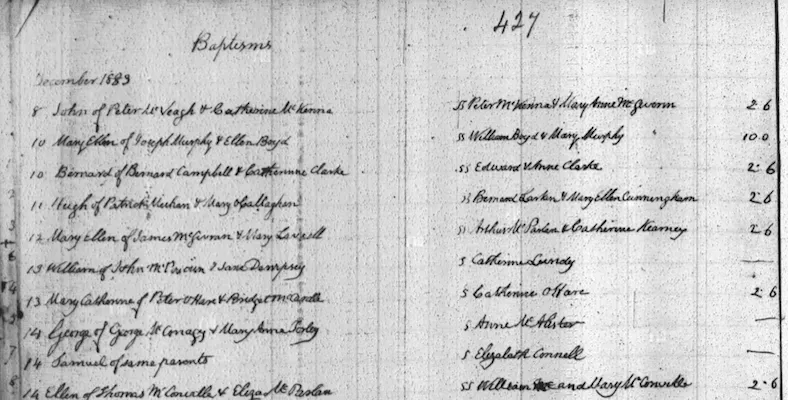 427
Baptisms
December 1883
8 John of Peter McVeagh & Catherine McKenna SS Peter McKenna & Mary Anne McGivern 2 6
10 Mary Ellen of Joseph Murphy & Ellen Boyd SS William Boyd & Mary Murphy 10.0
10 Bernard of Bernard Campbell & Catherine Clarke SS Edward & Anne Clarke 2.6
11 Hugh of Patrick Meehan & Mary O'Callaghan SS Bernard Larkin & Mary Ellen Cunningham 2 6
12 Mary Ellen of James McGivran & Mary SS Arthur McParlan & Catherine Kearney 2 6
13 William of John & Jane Dempsey S Catherine Lundy —
13 Mary Catherine of Peter O'Hare & Bridget McArdle S Catherine O'Hare 2.6
14 George of George McConaghy & Mary Anne S Anne McAlister —
14 Samuel of same parents S Elizabeth Connell —
14 Ellen of Thomas McConville & Eliza McParlan SS William and Mary McConville 2.6